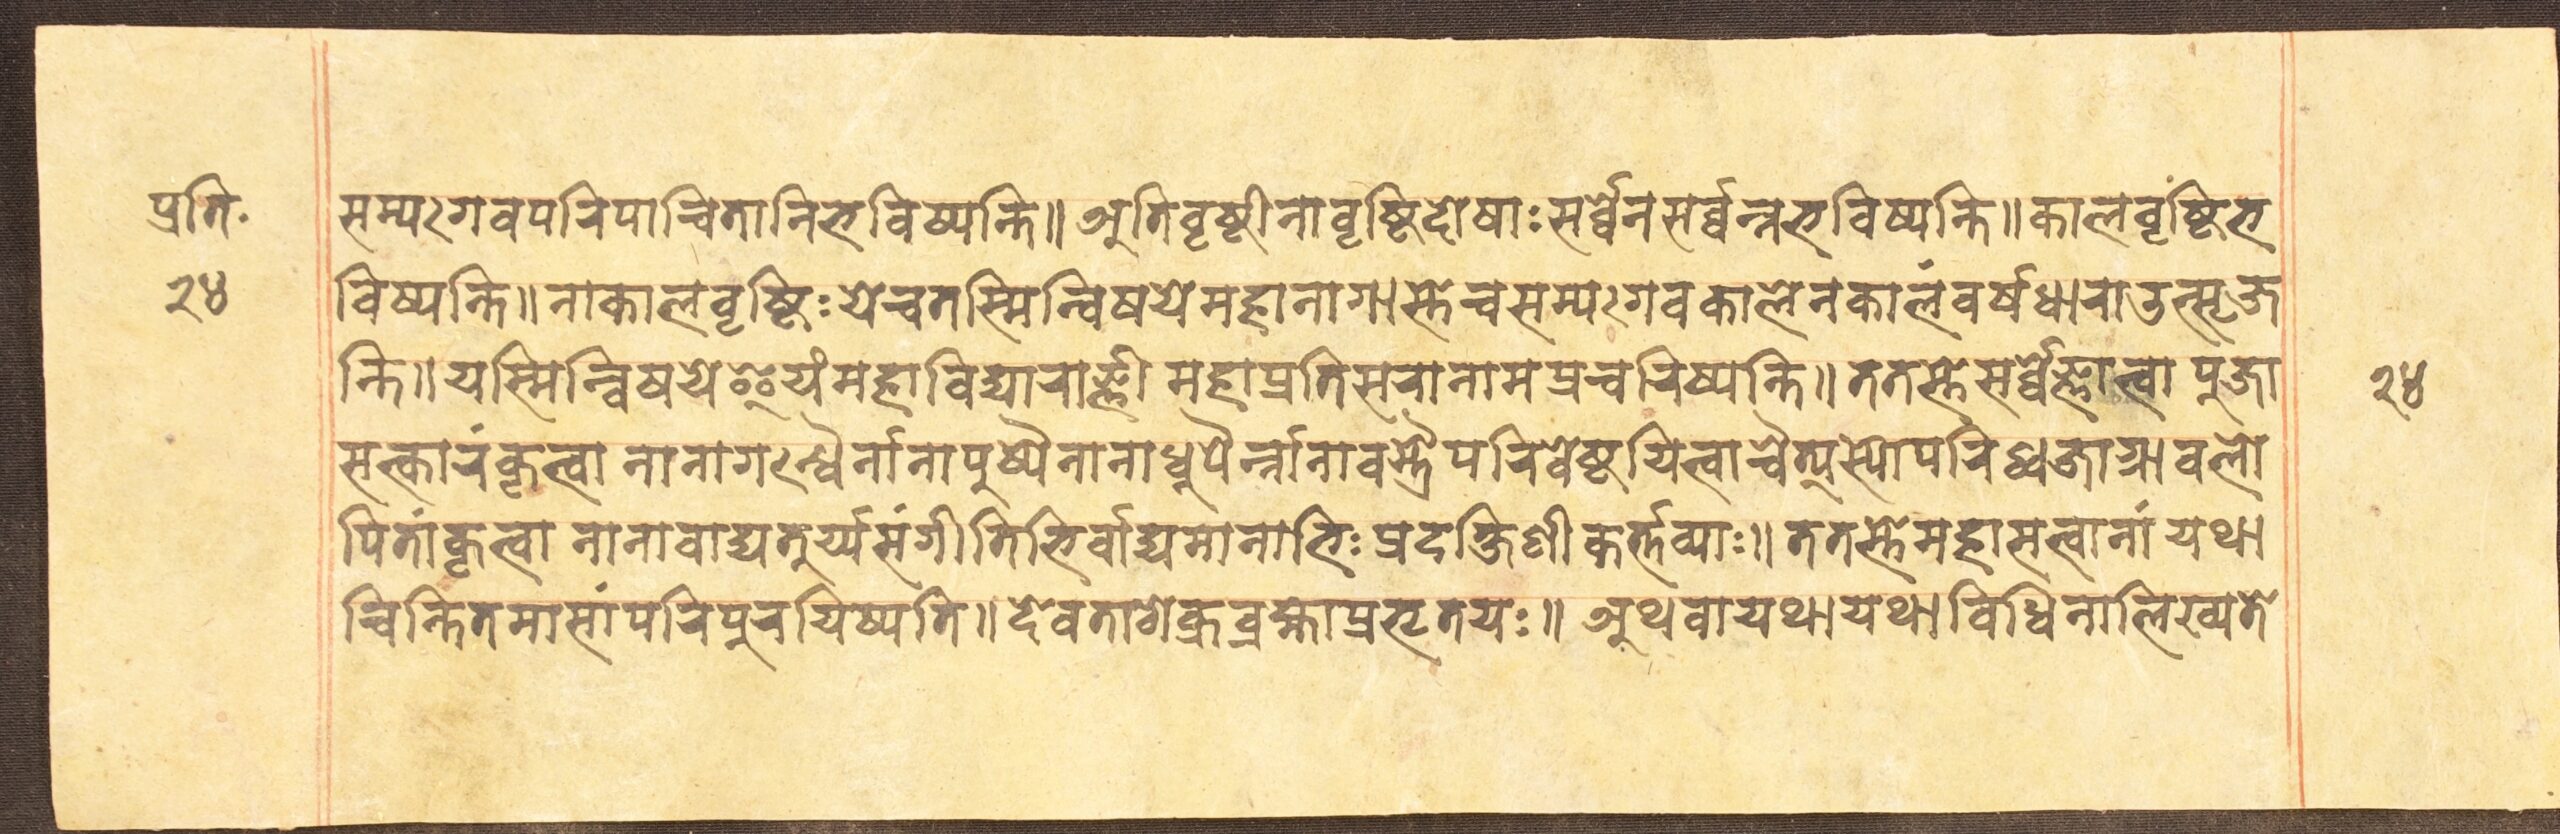 प्रति.
२४
सम्यग्गवपरिपाचितानिभविष्यन्ति॥ अतिवृष्टीनावृष्टिदोषाःसर्व्वेनसर्व्वन्नभविष्यन्ति॥कालवृष्टिभ
विष्यन्ति॥नाकालवृष्टिःयेचतस्मिन्विषयेमहानागास्तेचसम्यग्गवकालेनकालंवर्षधाराउत्सृज
न्ति॥यस्मिन्विषयेइयंमहाविद्याराज्ञी महाप्रतिसरानामप्रचरिष्यन्ति॥ततस्तेसर्व्वेज्ञात्वा पुजा
सत्कारंकृत्वा नानागन्धैर्नानापुष्पैनानाधुपैर्न्नानावस्त्रैपरिवेष्टयित्वाचैत्यस्योपरिध्वजाग्रावलो
पितांकृत्वा नानावाद्यतुर्य्यसंगीतिभिर्वाद्यमानाभिः प्रदक्षिणीकर्त्तव्याः॥ततस्तेमहासत्वानां यथा
चिन्तितमासांपरिपुरयिष्यति॥देवताशेक्रब्रह्माप्रभृतयः॥ अथवायथायथाविधिनालिख्यते
२४